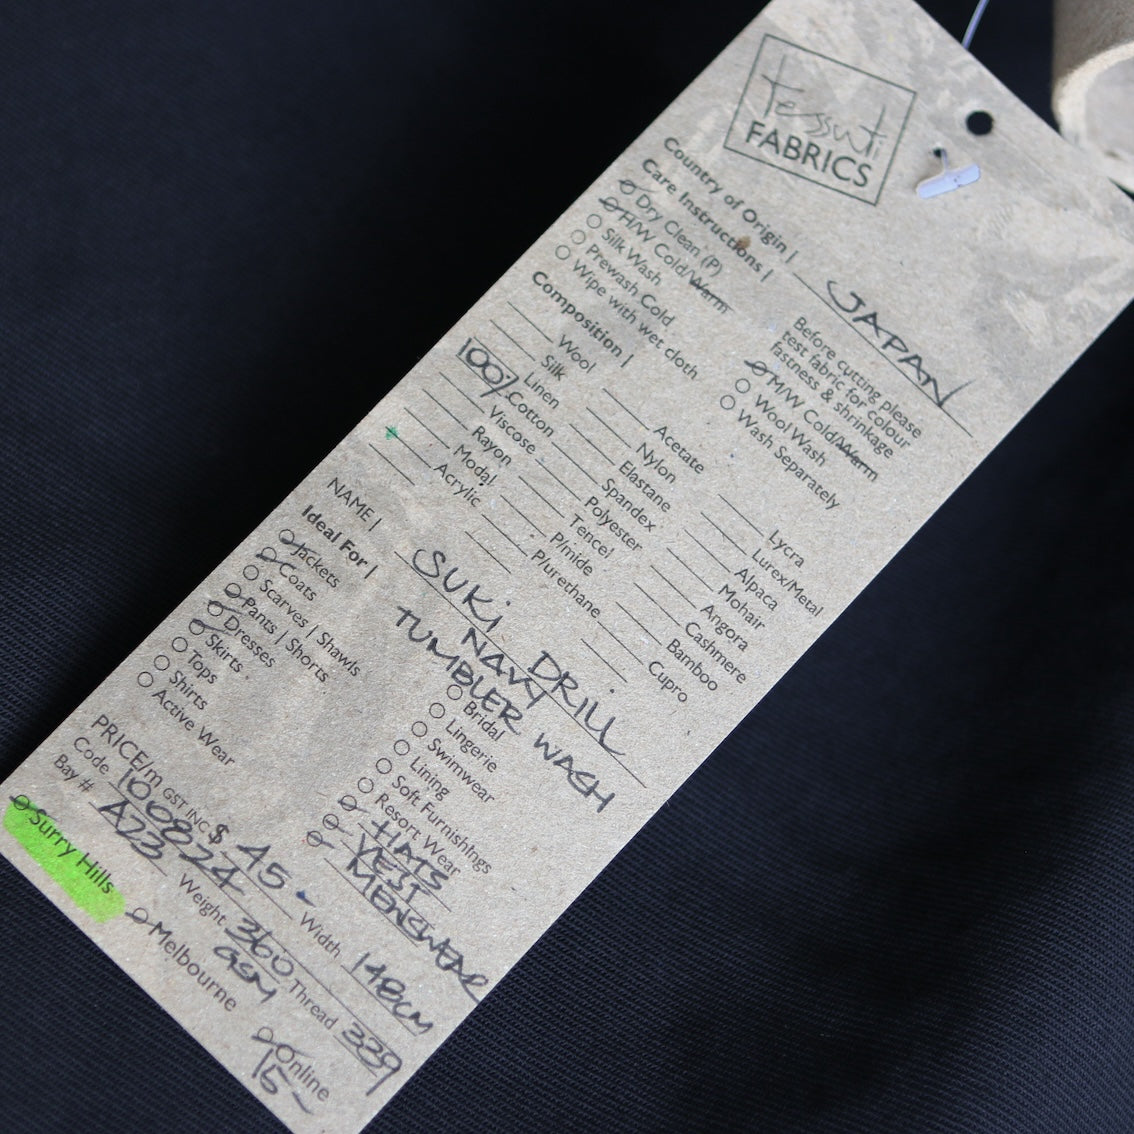 tessuti
FABRICS
Country of Origin | JAPAN
Care Instructions |
Dry Clean (P)
H/W Cold/Warm
Silk Wash
Prewash Cold
Wipe with wet cloth
Before cutting please
test fabric for colour
fastness & shrinkage
M/W Cold/Warm
Wool Wash
Wash Separately
Composition |
Wool
Silk
Linen
100% Cotton
Viscose
Rayon
Modal
Acrylic
Acetate
Nylon
Elastane
Spandex
Polyester
Tencel
P/mide
P/urethane
Lycra
Lurex/Metal
Alpaca
Mohair
Angora
Cashmere
Bamboo
Cupro
NAME | SUKI DRILL
NAVY
TUMBLER WASH
Ideal For |
Jackets
Coats
Scarves | Shawls
Pants | Shorts
Dresses
Skirts
Tops
Shirts
Active Wear
Bridal
Lingerie
Swimwear
Lining
Soft Furnishings
Resort Wear
HATS
VEST
MENSWEAR
PRICE/m GST INC $ 45 -
Code 100824 Width 148CM
Bay # A23 Weight 360 GSM Thread 339
Surry Hills Melbourne Online
15 -